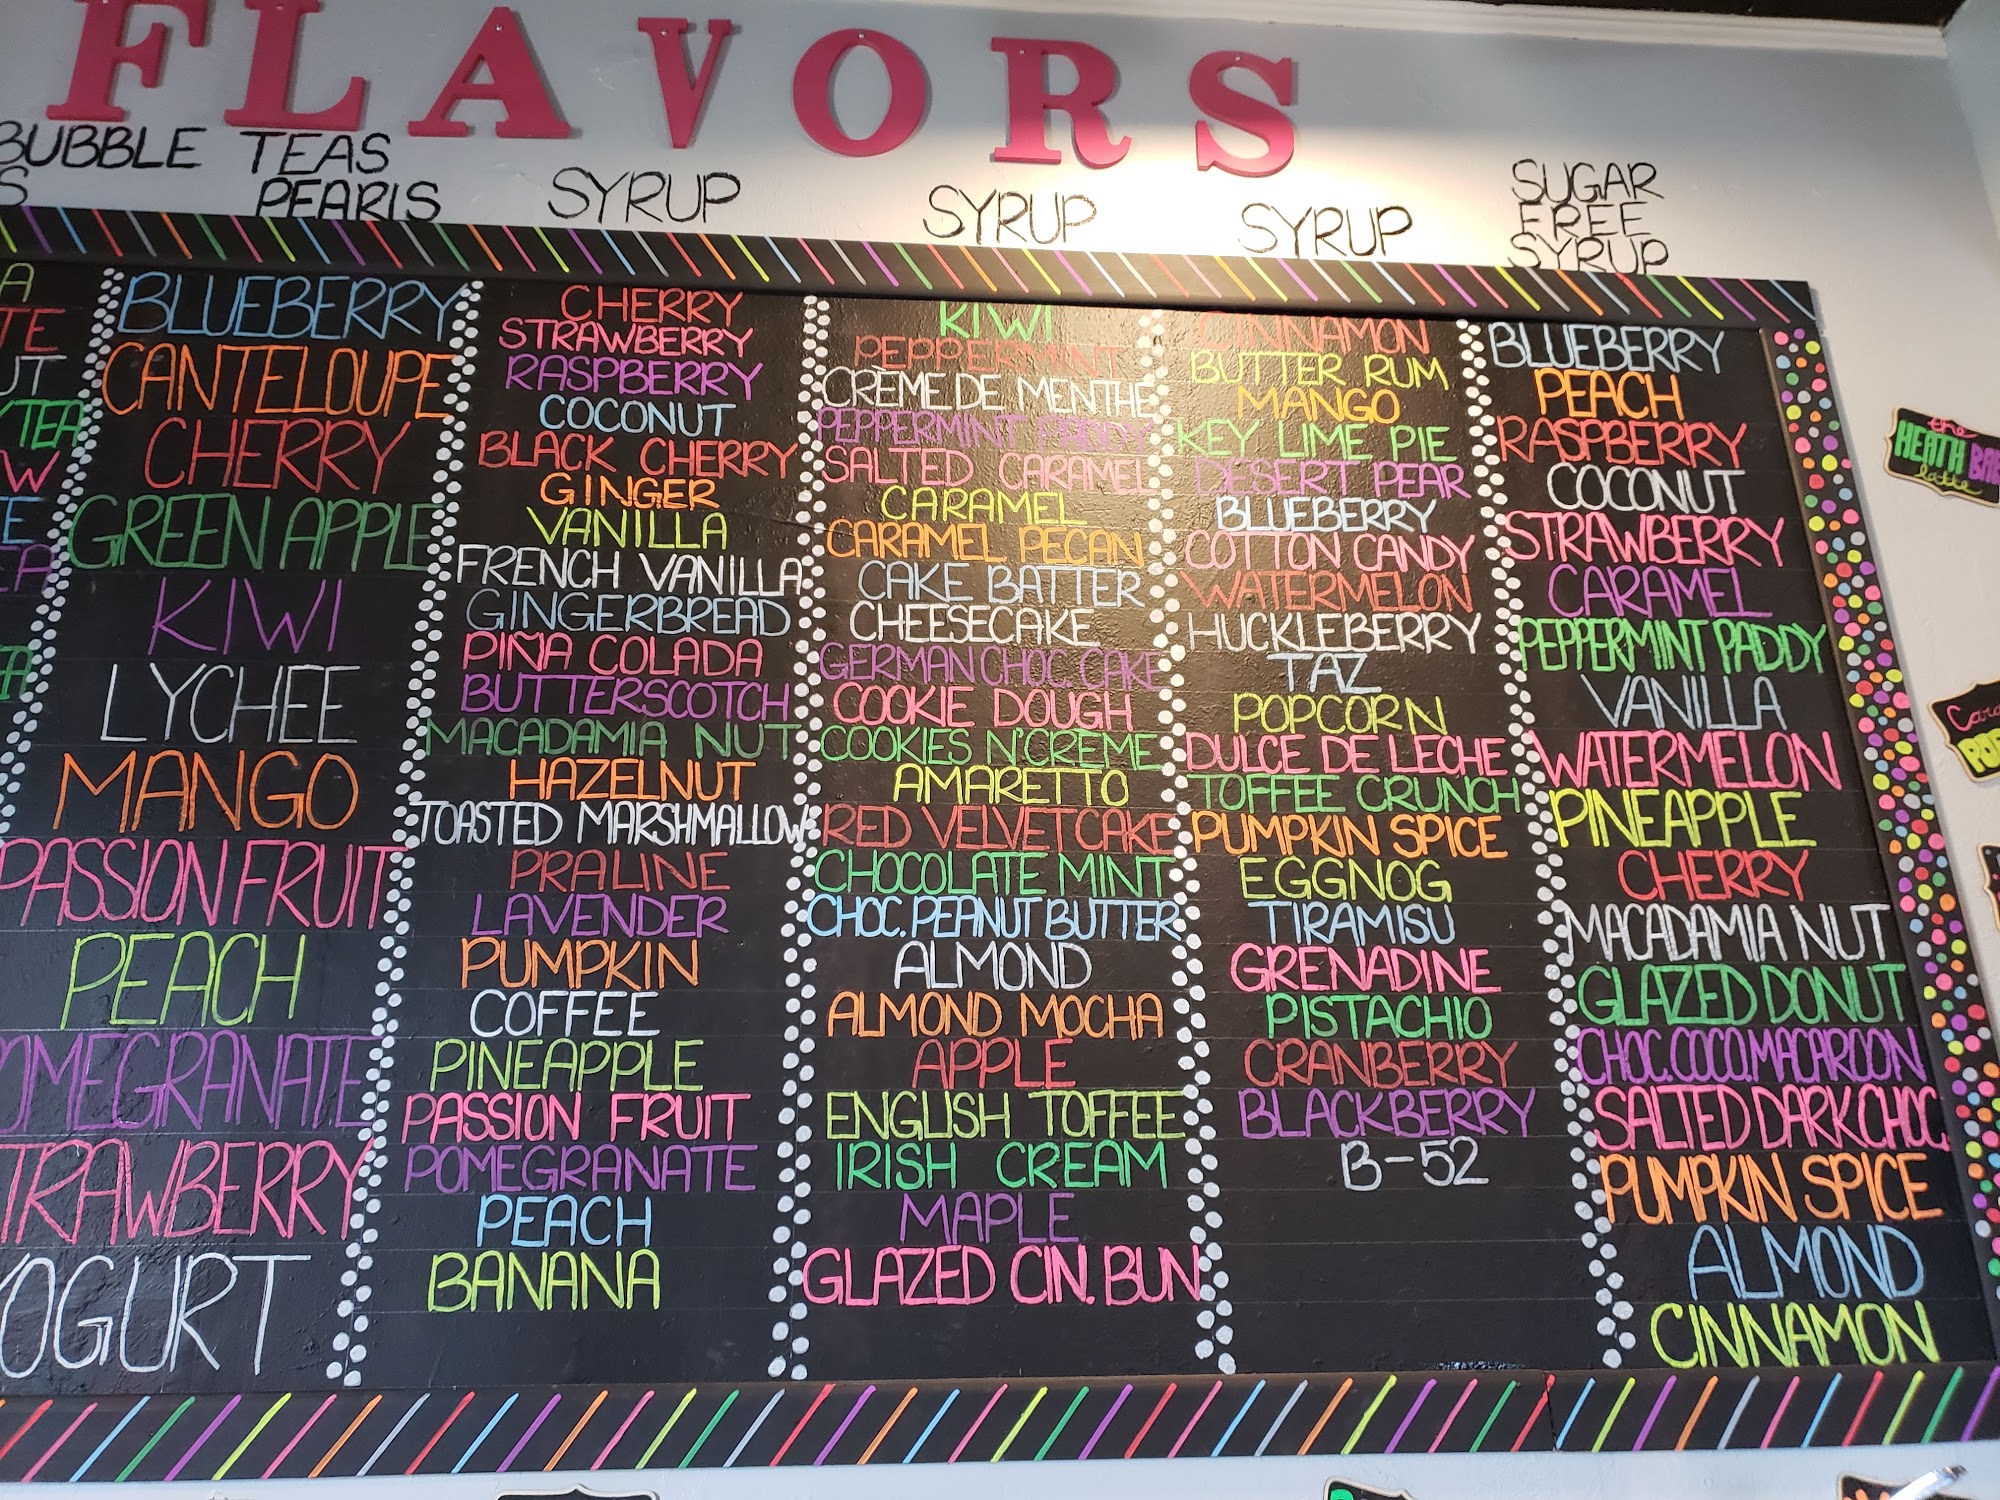 FLAVORS
BUBBLE TEAS
S PEARLS
SYRUP
SYRUP
SYRUP
SUGAR
FREE
SYRUP
A
TE
UT
TEA
W
E
EA
EA
BLUEBERRY
CANTELOUPE
CHERRY
GREEN APPLE
KIWI
LYCHEE
MANGO
PASSION FRUIT
PEACH
OMEGRANATE
TRAWBERRY
OGURT
CHERRY
STRAWBERRY
RASPBERRY
COCONUT
BLACK CHERRY
GINGER
VANILLA
FRENCH VANILLA
GINGERBREAD
PIÑA COLADA
BUTTERSCOTCH
MACADAMIA NUT
HAZELNUT
TOASTED MARSHMALLOW
PRALINE
LAVENDER
PUMPKIN
COFFEE
PINEAPPLE
PASSION FRUIT
POMEGRANATE
PEACH
BANANA
KIWI
PEPPERMINT
CRÈME DE MENTHE
PEPPERMINT PADDY
SALTED CARAMEL
CARAMEL
CARAMEL PECAN
CAKE BATTER
CHEESECAKE
GERMAN CHOC. CAKE
COOKIE DOUGH
COOKIES N'CREME
AMARETTO
RED VELVET CAKE
CHOCOLATE MINT
CHOC. PEANUT BUTTER
ALMOND
ALMOND MOCHA
APPLE
ENGLISH TOFFEE
IRISH CREAM
MAPLE
GLAZED CIN. BUN
CINNAMON
BUTTER RUM
MANGO
KEY LIME PIE
DESERT PEAR
BLUEBERRY
COTTON CANDY
WATERMELON
HUCKLEBERRY
TAZ
POPCORN
DULCE DE LECHE
TOFFEE CRUNCH
PUMPKIN SPICE
EGGNOG
TIRAMISU
GRENADINE
PISTACHIO
CRANBERRY
BLACKBERRY
B-52
BLUEBERRY
PEACH
RASPBERRY
COCONUT
STRAWBERRY
CARAMEL
PEPPERMINT PADDY
VANILLA
WATERMELON
PINEAPPLE
CHERRY
MACADAMIA NUT
GLAZED DONUT
CHOC.COCO.MACAROON
SALTED DARK CHOC.
PUMPKIN SPICE
ALMOND
CINNAMON
the
HEATH BAR
latte